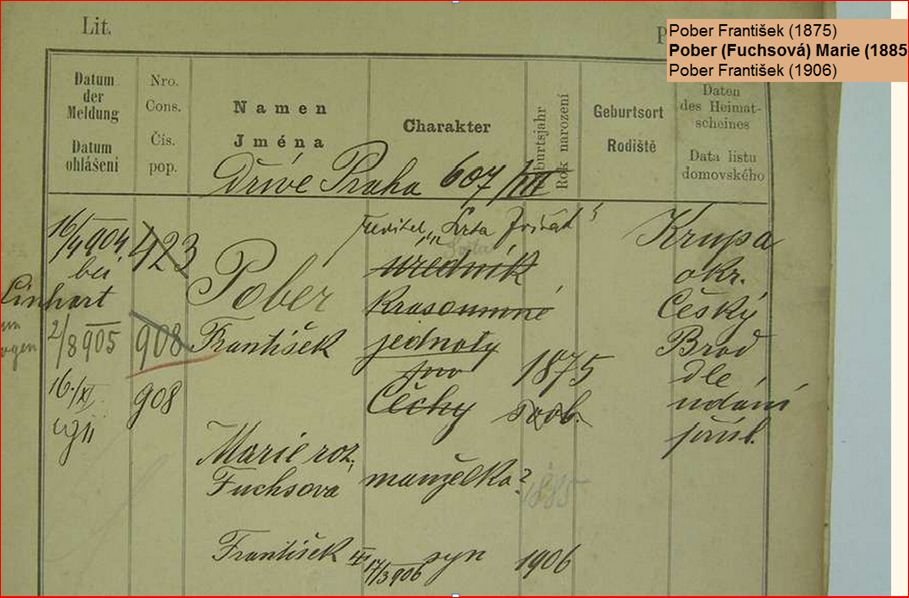 Lit.
P
Pober František (1875)
Pober (Fuchsová) Marie (1885
Pober František (1906)
Datum der Meldung
Datum ohlášení
Nro. Cons.
Čís. pop.
Namen
Jména
Charakter
Geburtsjahr
Rok narození
Geburtsort
Rodiště
Daten des Heimat-scheines
Data listu domovského
Dříve Praha 607/III
16/4 904
bei
Linhart
423
ředitel
Pober
František
úředník
Krasoumné
jednoty
pro
Čechy
1875
svob.
Krupa
okr.
Český
Brod
dle
udání
přísl.
2/8 905
908
16/XI
908
Marie roz.
Fuchsova
manželka
1885
František
17/3 906
syn
1906